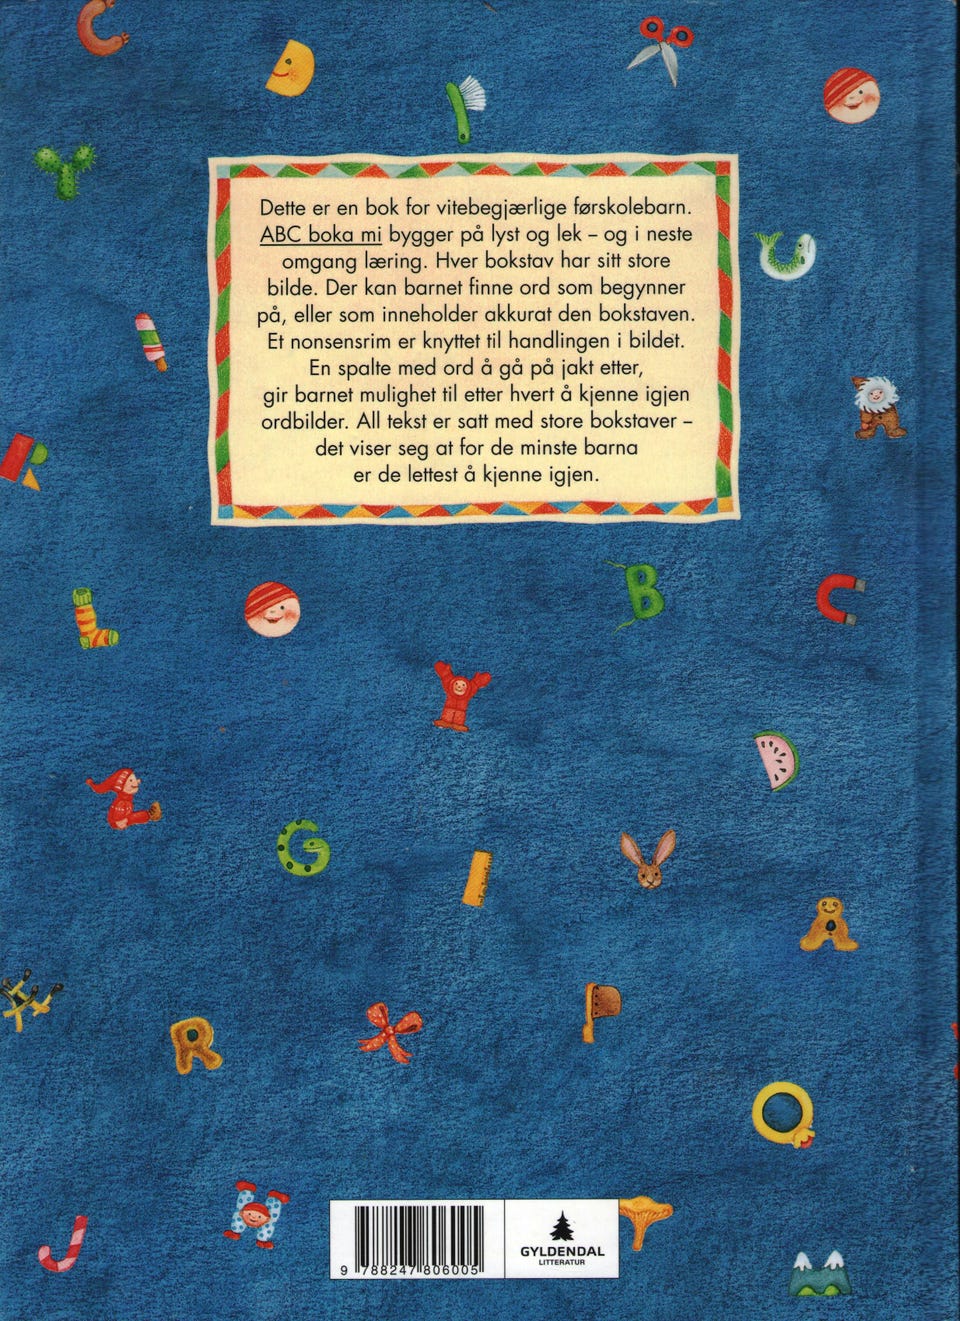 Dette er en bok for vitebegjærlige førskolebarn.
ABC boka mi bygger på lyst og lek – og i neste
omgang læring. Hver bokstav har sitt store
bilde. Der kan barnet finne ord som begynner
på, eller som inneholder akkurat den bokstaven.
Et nonsensrim er knyttet til handlingen i bildet.
En spalte med ord å gå på jakt etter,
gir barnet mulighet til etter hvert å kjenne igjen
ordbilder. All tekst er satt med store bokstaver –
det viser seg at for de minste barna
er de lettest å kjenne igjen.
9 788247 806005
GYLDENDAL
LITTERATUR